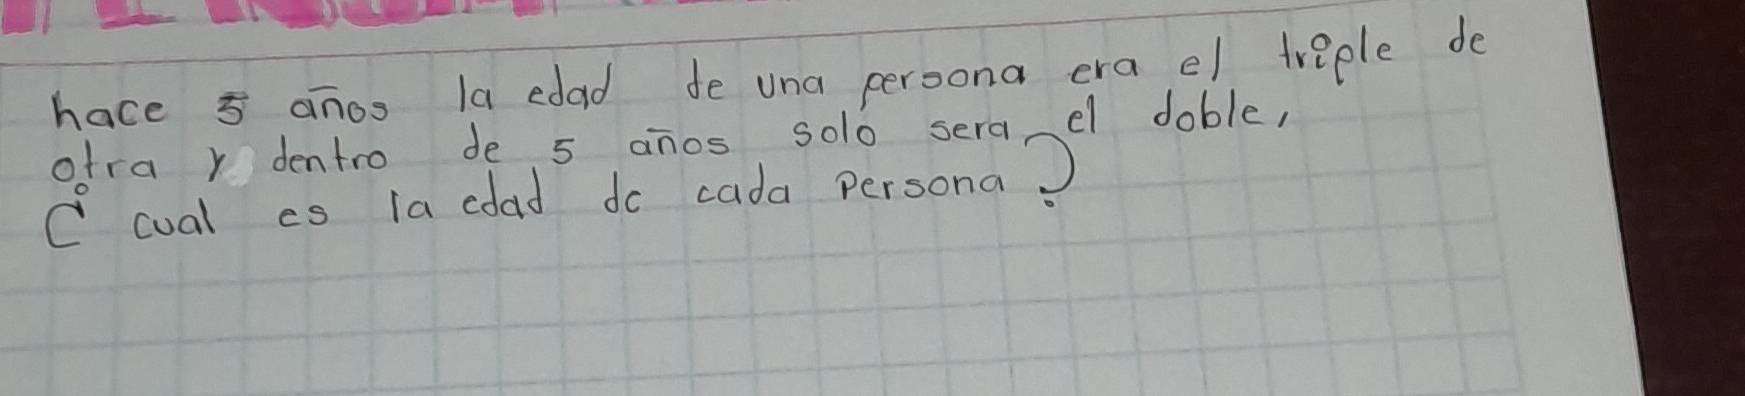 hace 5 años la edad de una persona era el triple de
otra y dentro de 5 años solo sera el doble,
¿ cual es la edad de cada persona?